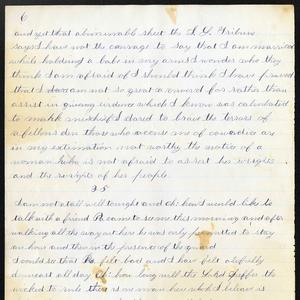 6
and yet that abominable sheet the S. L. Tribune
says I have not the courage to say that I am married
while holding a babe in my arms I wonder who they
think I am afraid of I should think I have proved
that I dare not so great a reward for rather than
assist in giving evidence which I knew was calculated
to make mischief I dared to brave the terrors of
a felons den those who accuse me of cowardice are
in my extimation not worthy the notice of a
woman who is not afraid to assert her rights
and the rights of her people.
25
I am not at all well tought and Oh! how I would like to
talk with a friend Pa came to see me this morning and after
walking all the way out here he was only permitted to stay
an hour and then in the presence of the guard
I could see that Pa felt bad and I have felt
down cast all day Oh how long will the Lord suffer the
wicked to rule there is no man her who I believe is